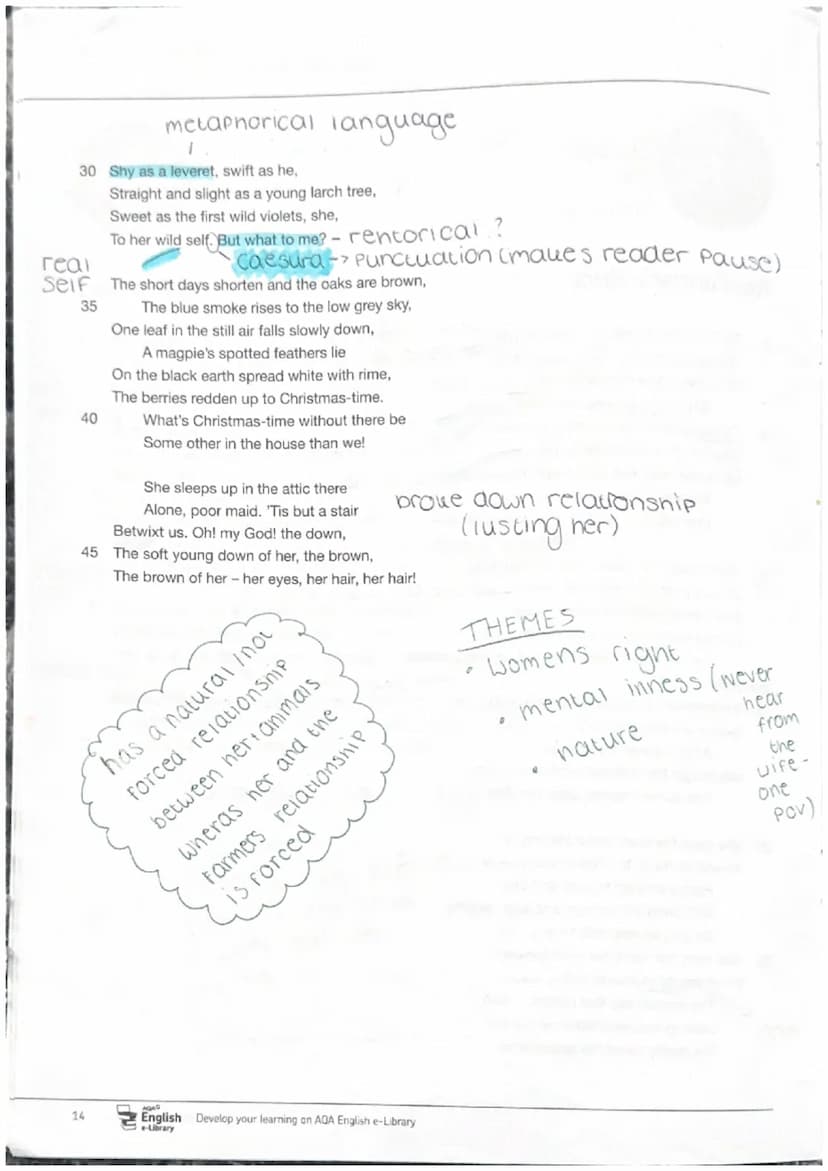 metaphorical language
30 Shy as a leveret, swift as he,
Straight and slight as a young larch tree,
Sweet as the first wild violets, she,
To her wild self. But what to me? - rentorical ?
caesura -> punctuation (makes reader pause)
real
self
The short days shorten and the oaks are brown,
35 The blue smoke rises to the low grey sky,
One leaf in the still air falls slowly down,
A magpie's spotted feathers lie
On the black earth spread white with rime,
The berries redden up to Christmas-time.
40 What's Christmas-time without there be
Some other in the house than we!
She sleeps up in the attic there
Alone, poor maid. 'Tis but a stair
Betwixt us. Oh! my God! the down,
45 The soft young down of her, the brown,
The brown of her – her eyes, her hair, her hair!
broke down relationship
(lusting her)
has a natural / not
forced relationship
between her + animals
wheras her and the
farmers relationship
is forced
THEMES
• womens right
• mental inness (never
hear
from
the
wife -
one
pov)
• nature
14 AQA English e-Library Develop your learning on AQA English e-Library